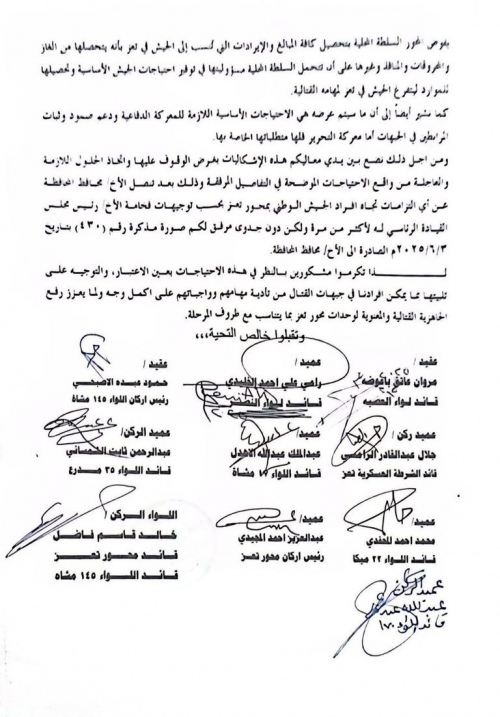 يفوض المحور السلطة المحلية بتحصيل كافة المبالغ والإيرادات التي تُنسب إلى الجيش في تعز بأنه يتحصلها من الغاز
والمحروقات والمنافذ وغيرها على أن تتحمل السلطة المحلية مسؤوليتها في توفير احتياجات الجيش الأساسية وتحصيلها
للموارد ليتفرغ الجيش في تعز لمهامه القتالية.
كما نشير أيضاً إلى أن ما سيتم عرضه هي الاحتياجات الأساسية اللازمة للمعركة الدفاعية ودعم صمود وثبات
المرابطين في الجبهات أما معركة التحرير فلها متطلباتها الخاصة بها.
ومن اجل ذلك نضع بين يدي معاليكم هذه الإشكاليات بغرض الوقوف عليها واتخاذ الحلول اللازمة
والعاجلة من واقع الاحتياجات الموضحة في التفاصيل المرفقة وذلك بعد تنصل الأخ/ محافظ المحافظة
عن أي التزامات تجاه افراد الجيش الوطني بمحور تعز بحسب توجيهات فخامة الأخ/ رئيس مجلس
القيادة الرئاسي له لأكثر من مرة ولكن دون جدوى مرفق لكم صورة مذكرة رقم (٤٣٠) بتاريخ
٢٠٢٥/٦/٣م الصادرة الى الأخ/ محافظ المحافظة.
لـذا تكرموا مشكورين بالنظر في هذه الاحتياجات بعين الاعتبار، والتوجيه على
تلبيتها مما يمكن افرادنا في جبهات القتال من تأدية مهامهم وواجباتهم على اكمل وجه ولما يعزز رفع
الجاهزية القتالية والمعنوية لوحدات محور تعز بما يتناسب مع ظروف المرحلة.
وتقبلوا خالص التحية،،،
عقيد / عميد / عقيد /
مروان فائق بافوضه رامي علي احمد الخليدي حمود عبده الاصبحي
قائد لواء العصبه قائد لواء النصر رئيس اركان اللواء ١٤٥ مشاة
عميد ركن / عميد / عميد الركن /
جلال عبدالقادر الرامسي عبدالملك عبدالله الاهدل عبدالرحمن ثابت الشمساني
قائد الشرطة العسكرية تعز قائد اللواء ١٧ مشاة قائد اللواء ٣٥ مدرع
عميد / عميد / اللواء الركن /
محمد احمد المحفدي عبدالعزيز احمد المجيدي خالد قاسم فاضل
قائد اللواء ٢٢ ميكا رئيس اركان محور تعز قائد محور تعز
قائد اللواء ١٤٥ مشاه
عميد الركن
عبدالله عبده
قائد اللواء ١٧٠